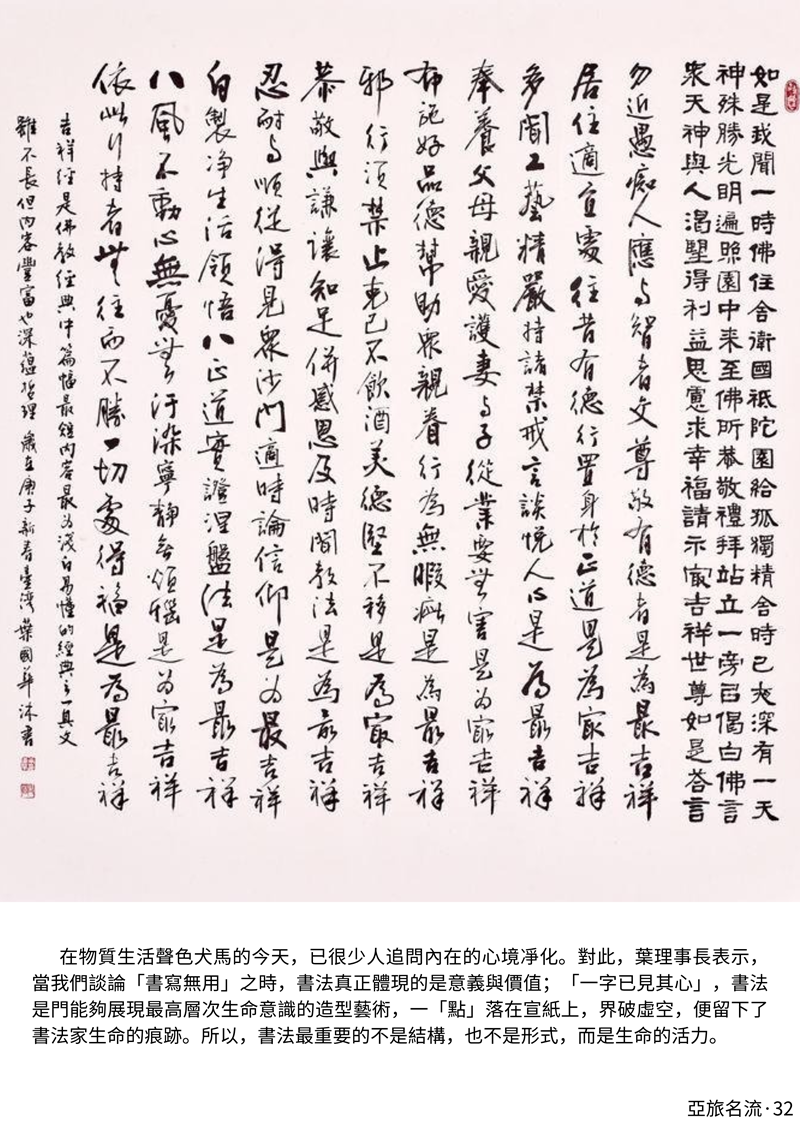 如是我聞一時佛住舍衛國祗陀園給孤獨精舍時已夜深有一天
神殊勝光明遍照園中来至佛所恭敬禮拜站立一旁吕偈白佛言
衆天神與人渴望得利益思慮求幸福請示最吉祥世尊如是答言
勿近愚痴人應与智者交尊敬有德者是為最吉祥
居住適宜處往昔有德行置身於正道是為最吉祥
多聞工藝精嚴持諸禁戒言談悅人心是為最吉祥
奉養父母親愛護妻与子從業要無害是为最吉祥
布施好品德幫助眾親眷行為無瑕疵是為最吉祥
邪行須禁止克己不飲酒美德堅不移是為最吉祥
恭敬與謙讓知足併感恩及時聞教法是為最吉祥
忍耐与順從得見眾沙門適時論信仰是为最吉祥
自製净生活領悟八正道實證涅盤法是為最吉祥
八風不動心無憂無汙染寧靜無煩惱是为最吉祥
依此行持者無往而不勝一切處得福是為最吉祥
吉祥經是佛教經典中篇幅最短内容最为淺白易懂的經典之一其文
雖不長但内容豐富也深蕴哲理 歲在庚子新春臺灣葉國華沐書
在物質生活聲色犬馬的今天，已很少人追問內在的心境淨化。對此，葉理事長表示，
當我們談論「書寫無用」之時，書法真正體現的是意義與價值；「一字已見其心」，書法
是門能夠展現最高層次生命意識的造型藝術，一「點」落在宣紙上，界破虛空，便留下了
書法家生命的痕跡。所以，書法最重要的不是結構，也不是形式，而是生命的活力。
亞旅名流·32